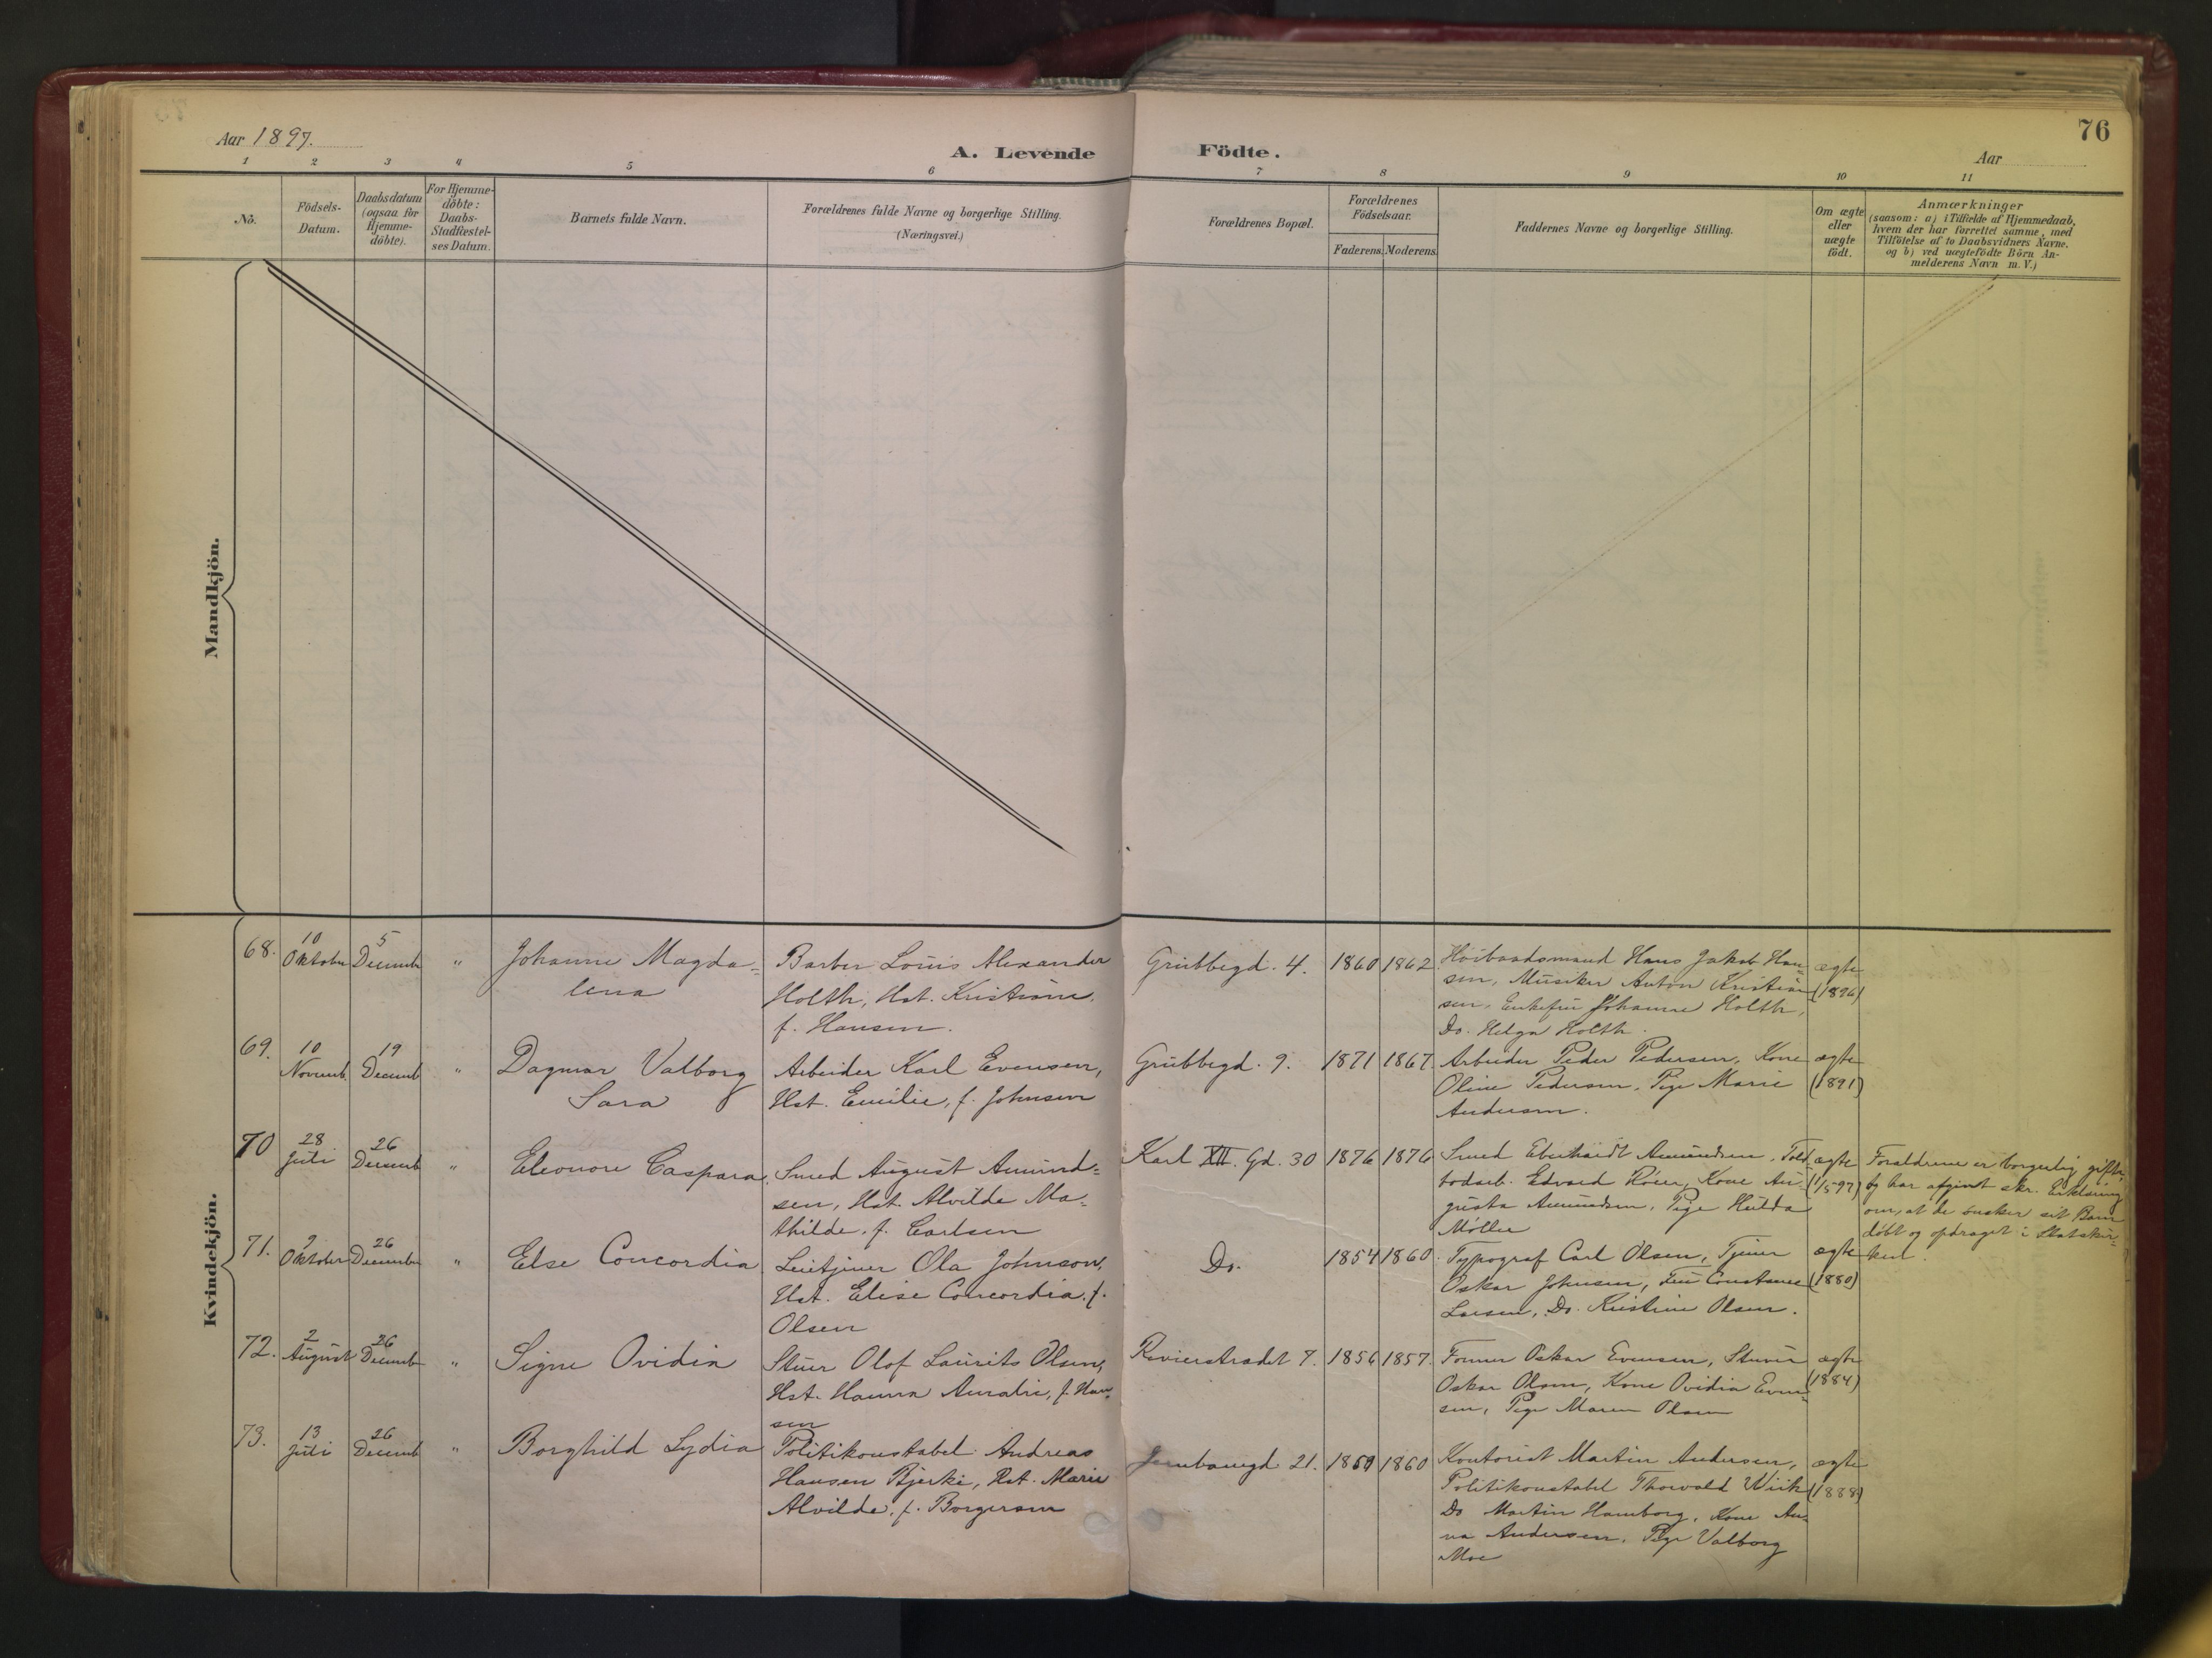 76
Aar 1897.
A. Levende Födte.
Aar
1 2 3 4 5 6 7 8 9 10 11
No.
Födsels-
Datum.
Daabsdatum
(ogsaa for
Hjemme-
döbte).
For Hjemme-
döbte:
Daabs-
Stadfæstel-
ses Datum.
Barnets fulde Navn.
Forældrenes fulde Navne og borgerlige Stilling.
(Næringsvei.)
Forældrenes Bopæl.
Forældrenes
Födselsaar.
Faderens. Moderens.
Faddernes Navne og borgerlige Stilling.
Om ægte
eller
uægte
födt.
Anmærkninger
(saasom: a) i Tilfælde af Hjemmedaab,
hvem der har forrettet samme, med
Tilföielse af to Daabsvidners Navne.
og b) ved uægtefödte Börn An-
melderens Navn m. V.)
Mandkjön.
Kvindekjön.
68.
10
Oktober
5
Decemb
"
Johanne Magda-
lena
Barber Louis Alexander
Holth, Hst. Kristiane,
f. Hansen.
Grübbegd. 4.
1860 1862
Hans Jakob Han-
sen, Musiker Anton Kristian
sen, Enkefru Johanne Holth,
Do. Helga Holth.
ægte
(1896)
69.
10
Novemb.
19
Decemb
"
Dagmar Valborg
Sara
Arbeider Karl Evensen,
Hst. Emilie, f. Johnsen
Grübbegd. 9.
1871 1867.
Arbeider Peder Pedersen, Kone
Oline Pedersen, Pige Marie
Andersen.
ægte
(1891)
70
28
Juli
26
Decemb
"
Eleonore Caspara
Smed August Amund-
sen, Hst. Alvilde Ma-
thilde, f. Carlsen
Karl XII. Gd. 30
1876 1876
Smed Eberhardt Amundsen, Told
bodarb. Edvard Röer, Kone Au-
gusta Amundsen, Pige Hulda
Möller
ægte
(1/5 97)
Forældrene er borgerlig gifte
og har afgivet skr. Erklæring
om, at de önsker sit Barn
döbt og opdraget i Statskir-
ken.
71.
2
Oktober
26
Decembr
"
Else Concordia
Leietjener Ola Johnson,
Hst. Elise Concordia, f.
Olsen
Do.
1854 1860.
Typograf Carl Olsen, Tjener
Oskar Johnsen, Fru Constance
Larsen, Do. Kristine Olsen.
ægte
(1880)
72.
2
August
26
Decemb
"
Signe Ovidia
Stuer Olof Laurits Olsen,
Hst. Hanna Amalie, f. Han-
sen
Revierstradet 7.
1856 1857.
Former Oskar Evensen, Stuver
Oskar Olsen, Kone Ovidia Even-
sen, Pige Maren Olsen
ægte
(1884)
73.
13
Juli
26
Decemb
"
Borghild Lydia
Politikonstabel Andreas
Hansen Bjerke, Hst. Marie
Alvilde, f. Borgersen
Jernbanegd. 21.
1859 1860
Kontorist Martin Andersen,
Politikonstabel Thorvald Wiik
Do Martin Hamborg, Kone An-
na Andersen, Pige Valborg
Moe
ægte
(1888)